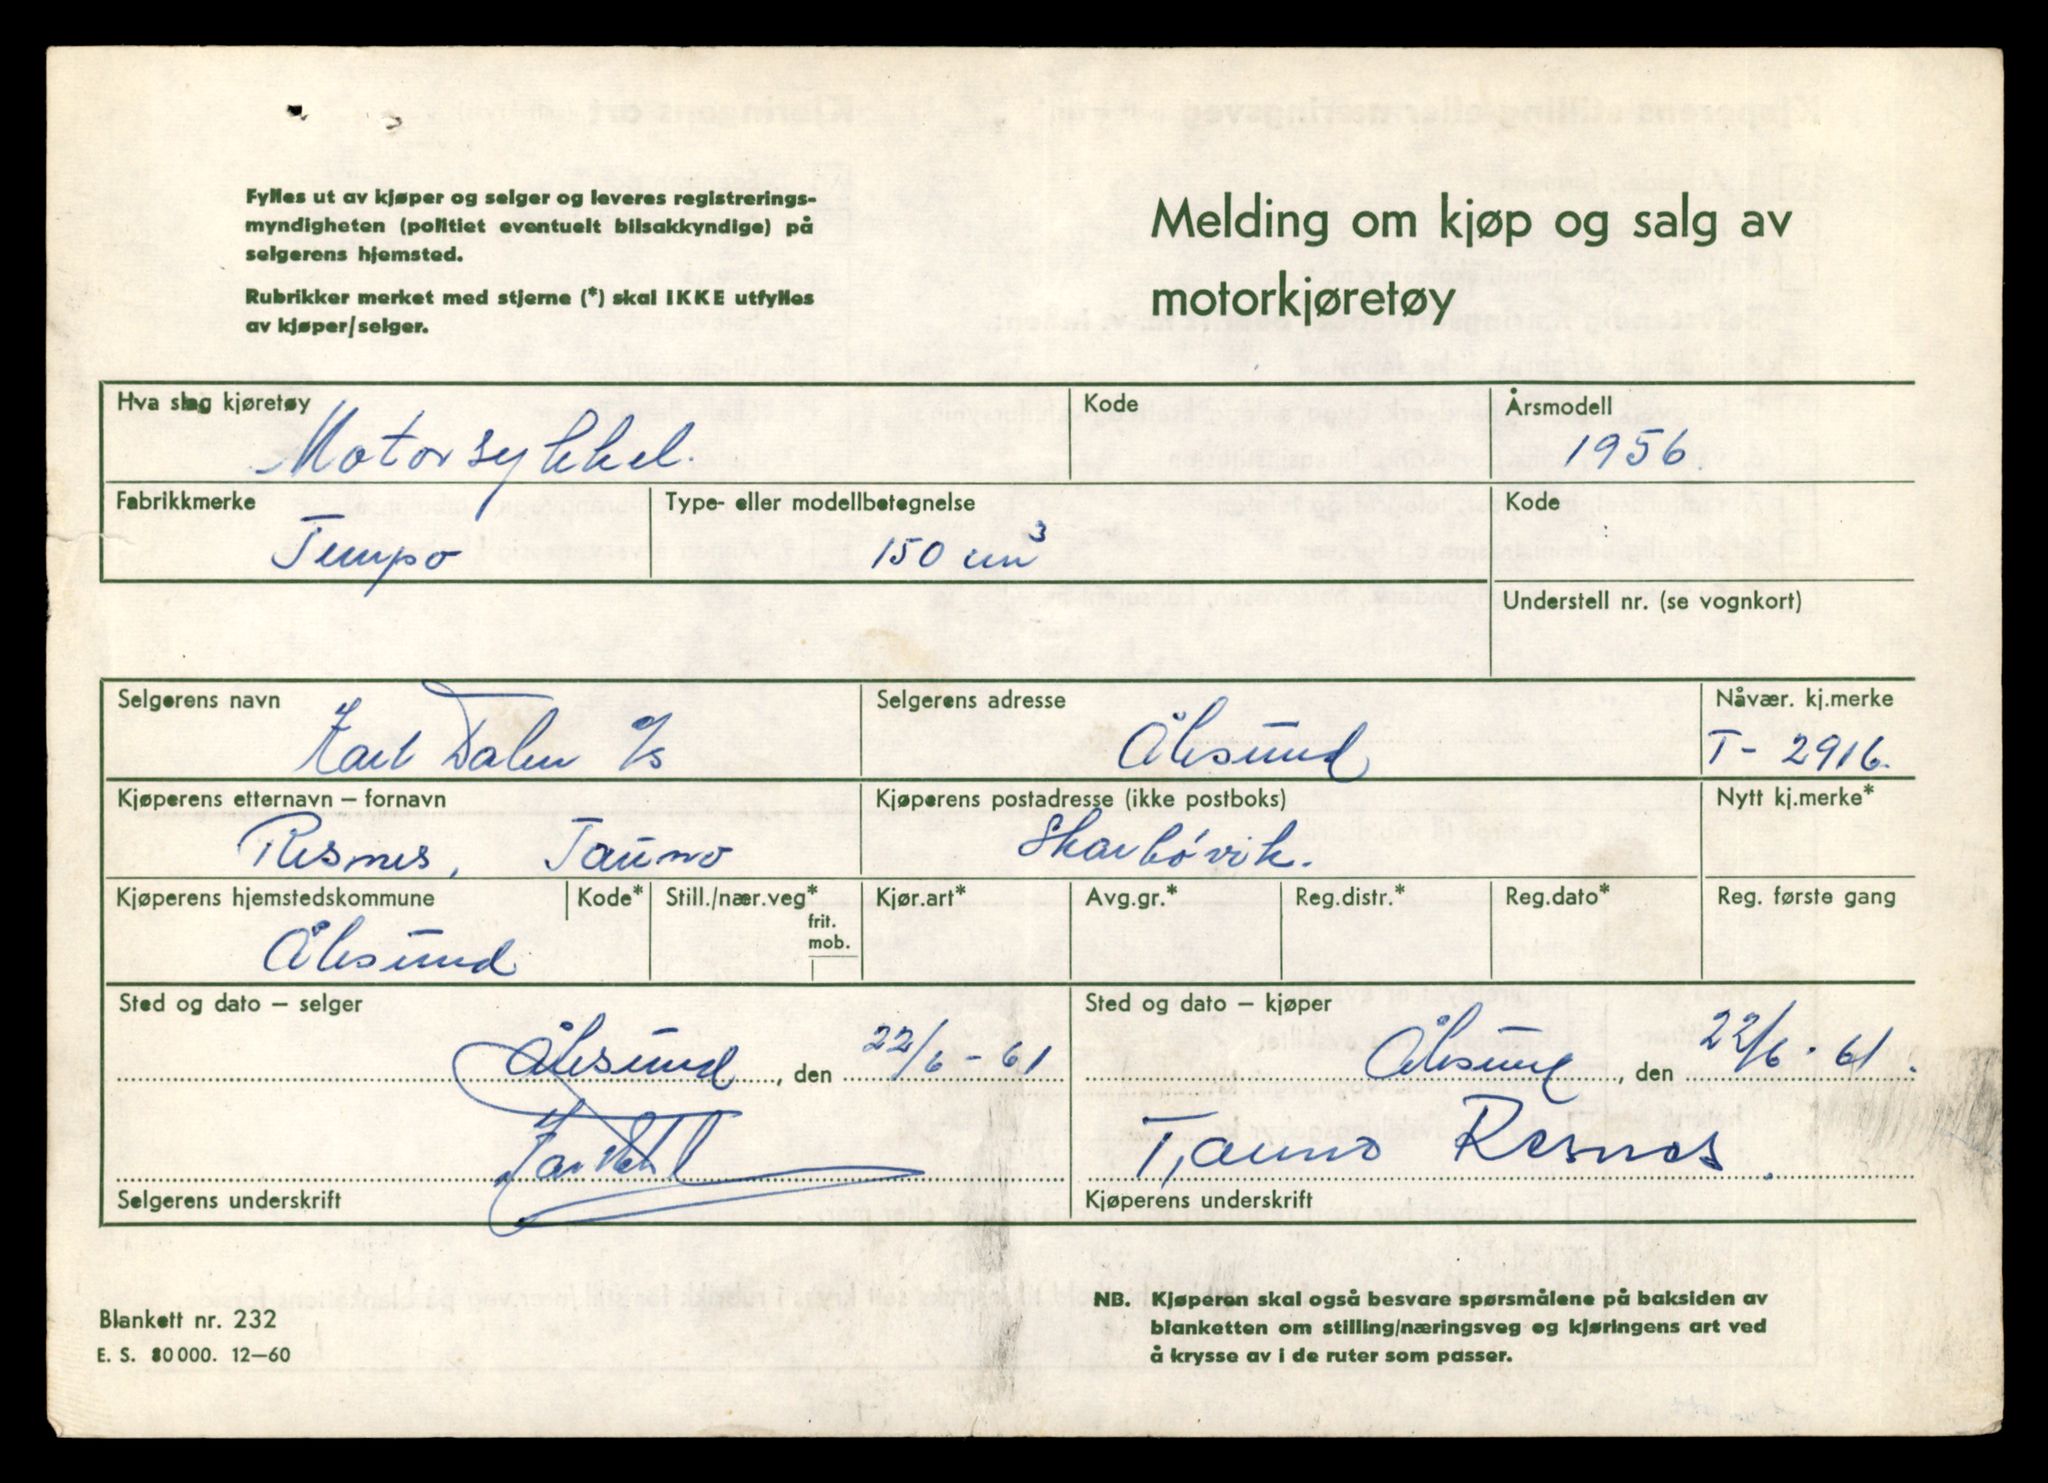 Fylles ut av kjøper og selger og leveres registrerings-
myndigheten (politiet eventuelt bilsakkyndige) på
selgerens hjemsted.
Rubrikker merket med stjerne (*) skal IKKE utfylles
av kjøper/selger.
Melding om kjøp og salg av
motorkjøretøy
Hva slag kjøretøy
Motorsykkel.
Kode
Årsmodell
1956.
Fabrikkmerke
Tempo
Type- eller modellbetegnelse
150 cm³
Kode
Understell nr. (se vognkort)
Selgerens navn
Karl Dalen A/S
Selgerens adresse
Ålesund
Nåvær. kj.merke
T- 2916.
Kjøperens etternavn – fornavn
Resnes, Tauno
Kjøperens postadresse (ikke postboks)
Skarbøvik.
Nytt kj.merke*
Kjøperens hjemstedskommune
Ålesund
Kode*
Still./nær.veg*
frit.
mob.
Kjør.art*
Avg.gr.*
Reg.distr.*
Reg.dato*
Reg. første gang
Sted og dato – selger
Ålesund, den 22/6 - 61
Selgerens underskrift
Sted og dato – kjøper
Ålesund, den 22/6 - 61.
Tauno Resnes.
Kjøperens underskrift
Blankett nr. 232
E. S. 80 000. 12—60
NB. Kjøperen skal også besvare spørsmålene på baksiden av
blanketten om stilling/næringsveg og kjøringens art ved
å krysse av i de ruter som passer.